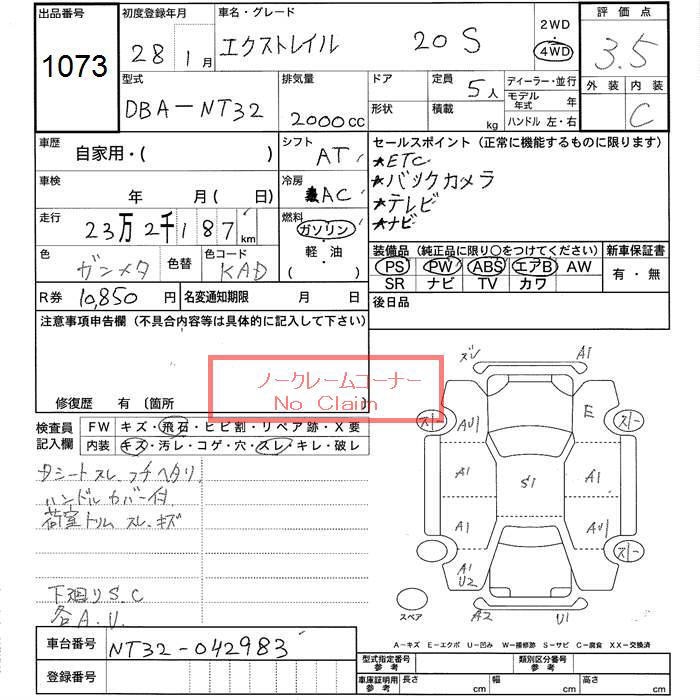 出品番号 初度登録年月 車名・グレード 2WD 評価点
1073 28 1月 エクストレイル 20S 4WD 3.5
外装 内装
C
型式 排気量 ドア 定員 ディーラー・並行
DBA-NT32 2000cc 5人 モデル年式 年
形状 積載 kg ハンドル 左・右
車歴 シフト セールスポイント (正常に機能するものに限ります)
自家用・( ) AT ★ETC
車検 冷房 ★バックカメラ
年 月( 日) AC ★テレビ
走行 燃料 ★ナビ
23万2千187km ガソリン
軽・油
( )
色 色替 色コード 装備品 (純正品に限り○をつけてください) 新車保証書
ガンメタ KAD PS PW ABS エアB AW 有・無
SR ナビ TV カワ
R券 10,850円 名変通知期限 月 日 後日品
注意事項申告欄 (不具合内容等は具体的に記入して下さい)
ノークレームコーナー
No Claim
修復歴 有 〔箇所
検査員記入欄 FW キズ・飛石・ヒビ割・リペア跡・X要
内装 キズ・汚レ・コゲ・穴・スレ・キレ・破レ
Dシートスレ、フチヘタリ
ハンドルカバー付
荷室トリムスレ、キズ
下廻りSC
各A.U.
ズレ A1
スレ AU E スレ
A1 S1 A1
A1 AU スレ
A1
U2
スペア A2 U1
A-キズ E-エクボ U-凹み W-補修跡 S-サビ C-腐食 XX-交換済
車台番号 NT32-042983
登録番号
型式指定番号 参考 類別区分番号 参考
車庫証明用 参考 長さ cm 幅 cm 高さ cm